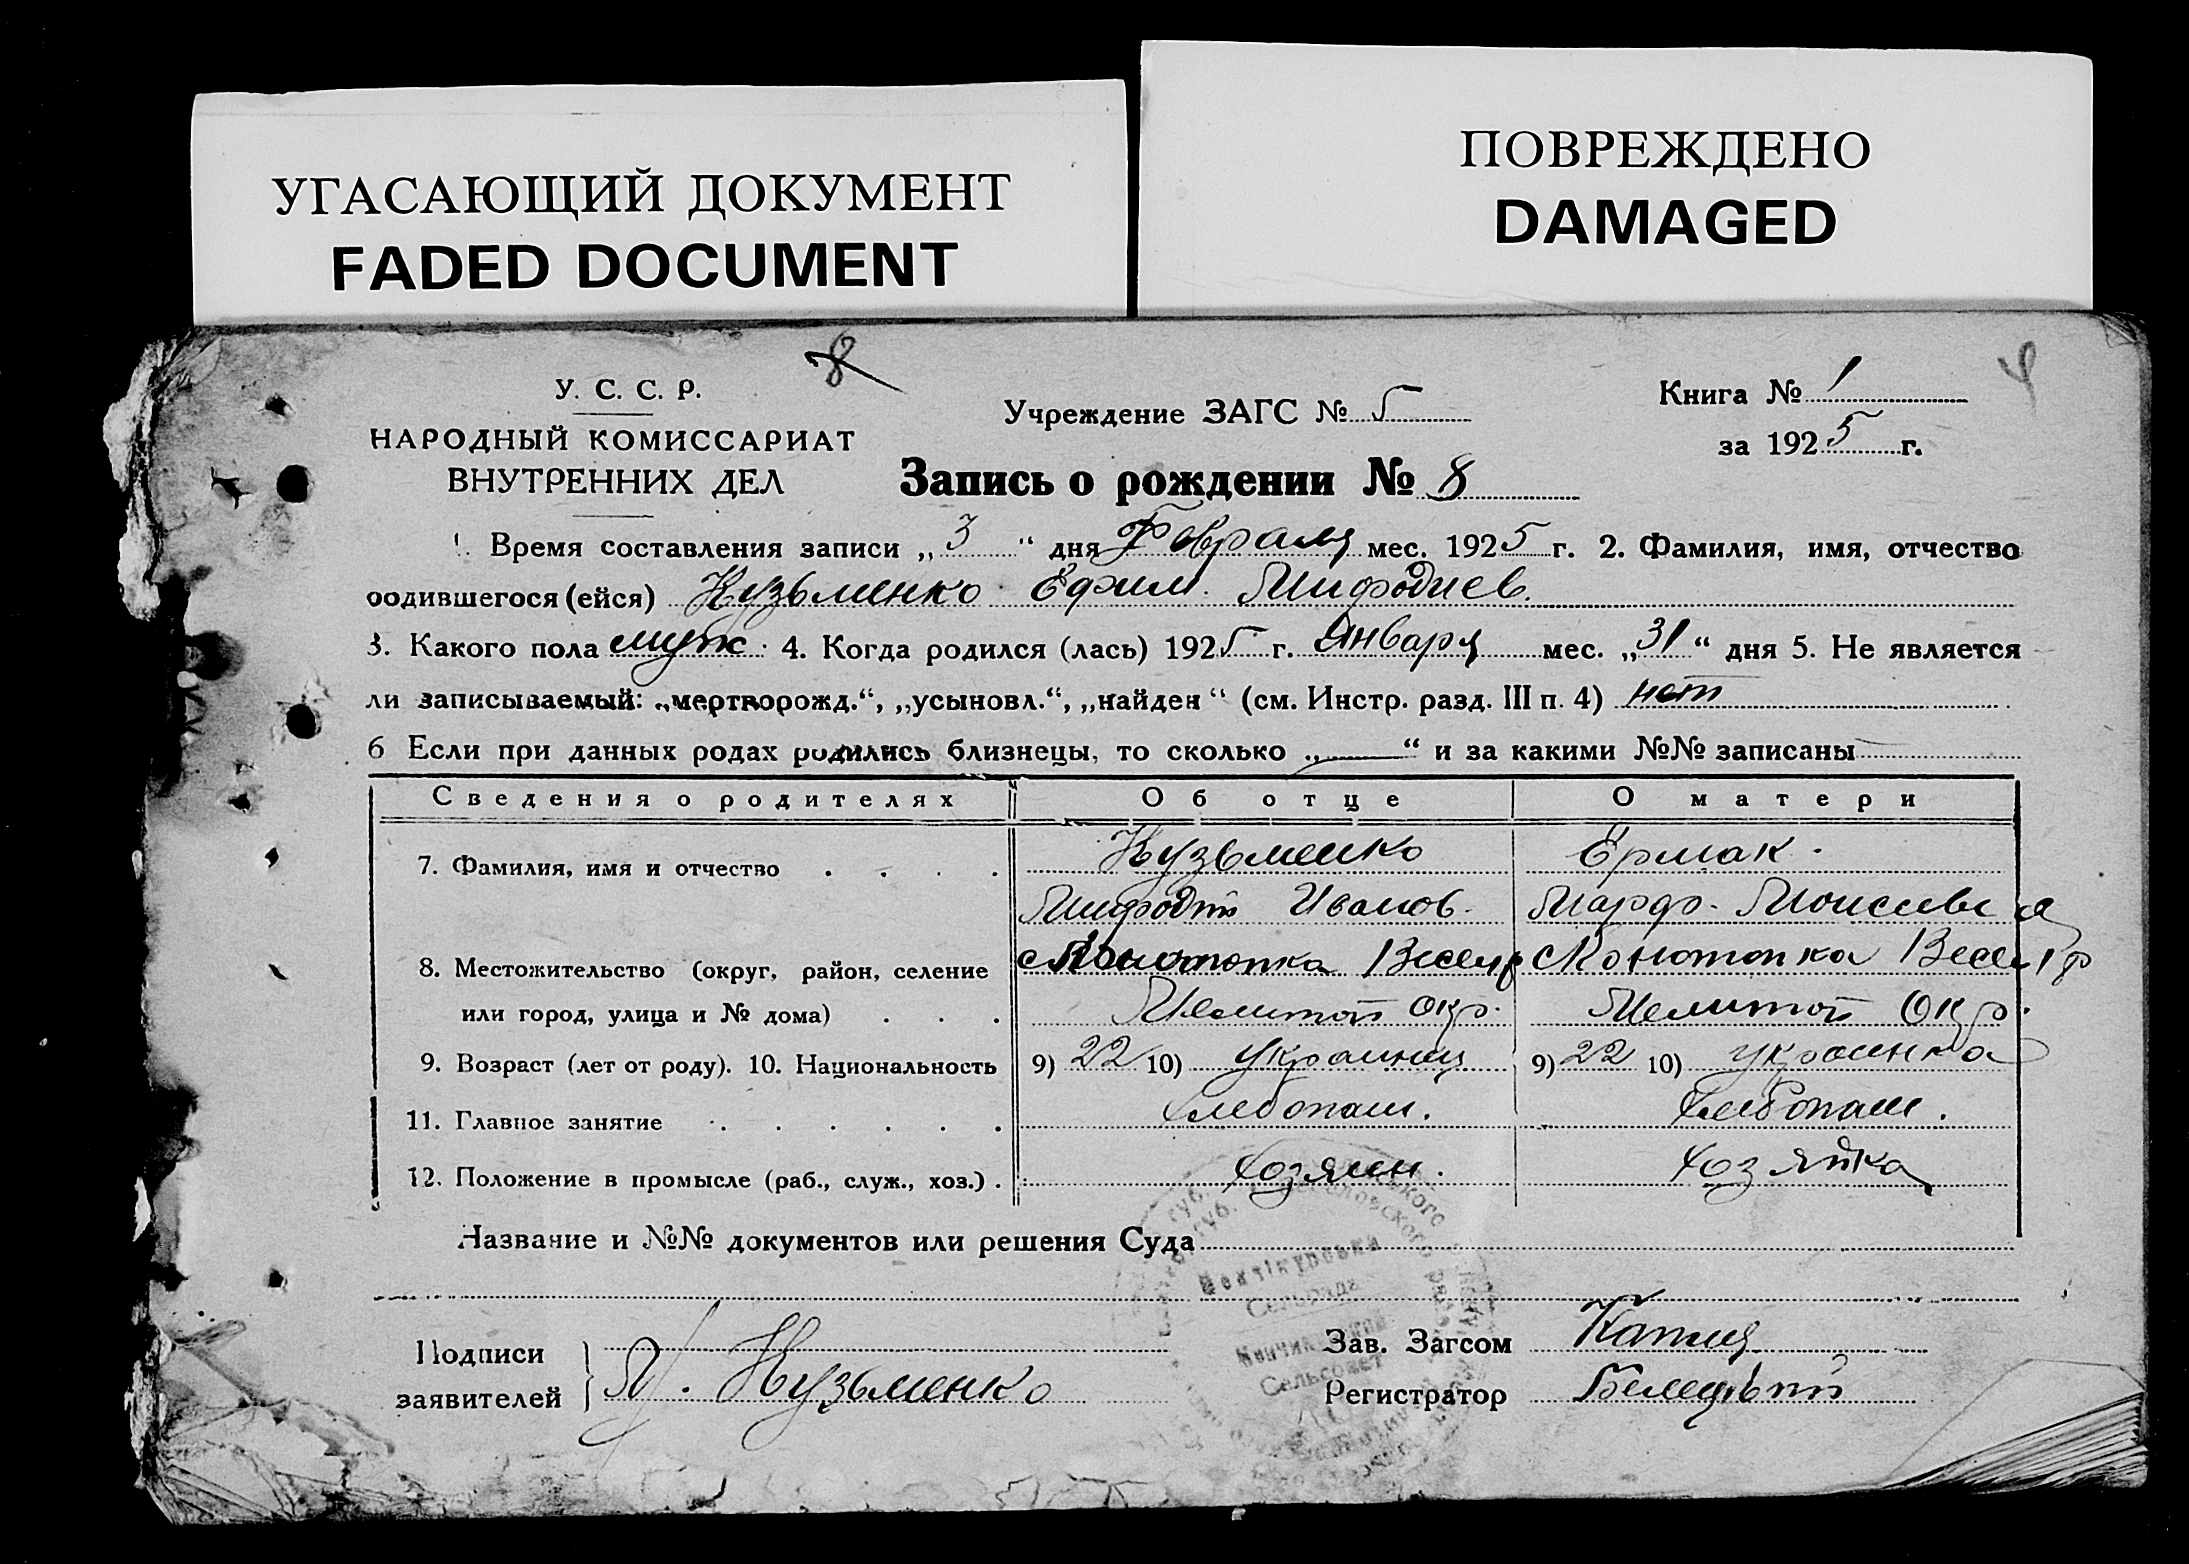 УГАСАЮЩИЙ ДОКУМЕНТ
FADED DOCUMENT
ПОВРЕЖДЕНО
DAMAGED
8
У. С. С. Р.
НАРОДНЫЙ КОМИССАРИАТ
ВНУТРЕННИХ ДЕЛ
Учреждение ЗАГС № 5
Книга № 1
за 1925 г.
Запись о рождении № 8
1. Время составления записи „3“ дня Февраля мес. 1925 г. 2. Фамилия, имя, отчество
родившегося (ейся) Кузьменко Ефим. Мифодиев.
3. Какого пола муж. 4. Когда родился (лась) 1925 г. Января мес. „31“ дня 5. Не является
ли записываемый: „мертворожд.“, „усыновл.“, „найден“ (см. Инстр. разд. III п. 4) нет
6 Если при данных родах родились близнецы, то сколько „—“ и за какими №№ записаны
Сведения о родителях Об отце О матери
7. Фамилия, имя и отчество Кузьменко Ермак.
Мифодий Иванов. Марф. Моисеевна
8. Местожительство (округ, район, селение с Конотопка Весел р с Конотопка Весел р
или город, улица и № дома) Мелитоп Окр. Мелитоп Окр.
9. Возраст (лет от роду). 10. Национальность 9) 22 10) украинец 9) 22 10) украинка
11. Главное занятие хлебопаш. хлебопаш.
12. Положение в промысле (раб., служ., хоз.) хозяин. хозяйка
Название и №№ документов или решения Суда
Сельрада
Сельсовет
Подписи
заявителей
М. Кузьменко
Зав. Загсом
Регистратор